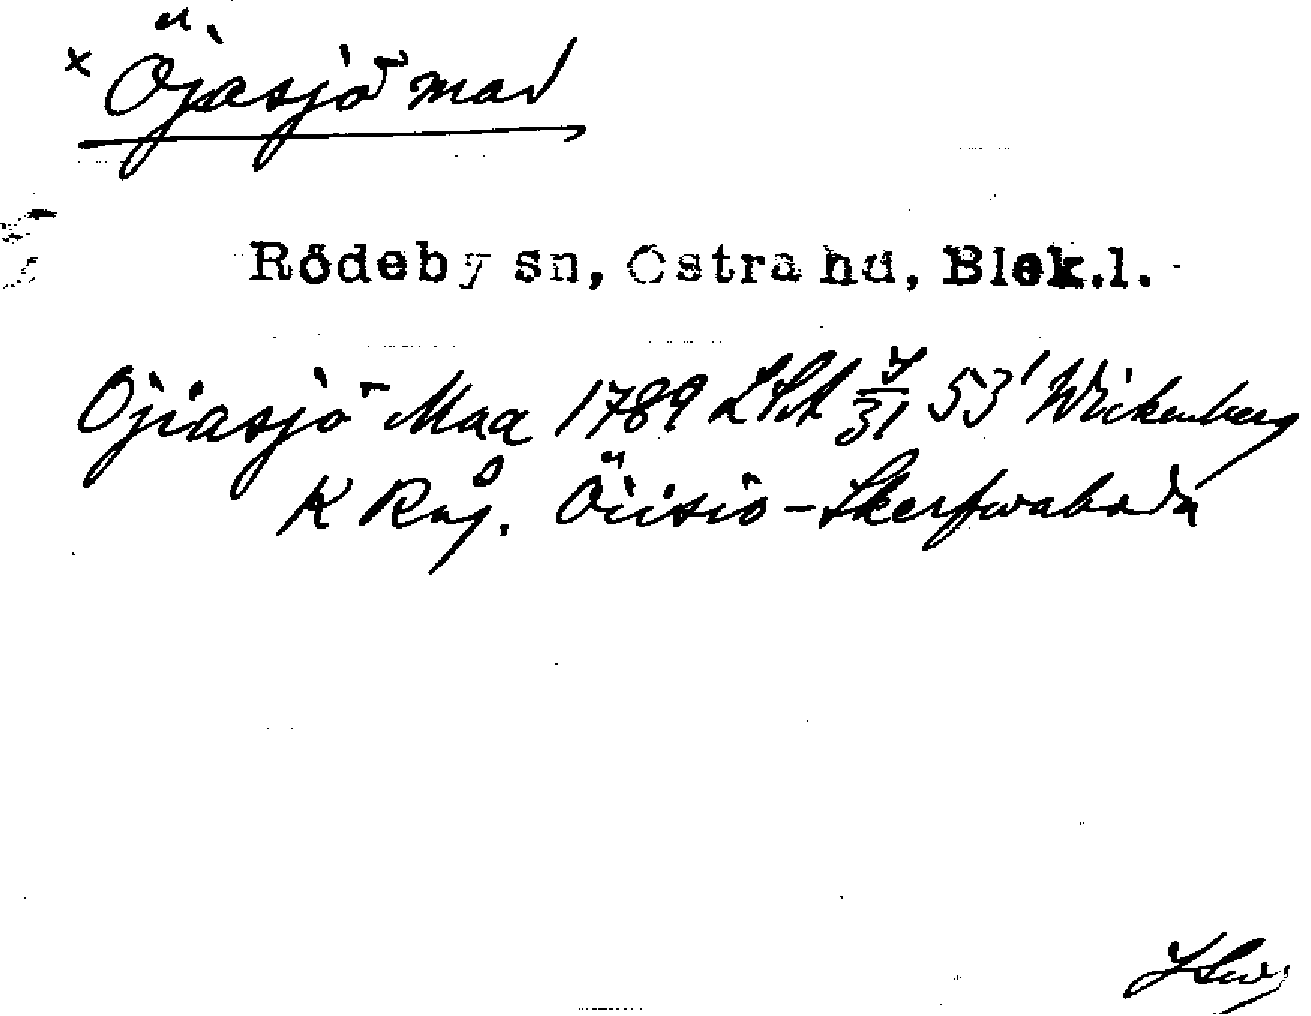 x Öjasjö mad
Rödeby sn, Östra hd, Blek.l.
Öjiasjö Maa 1789 LSA 53' Wickenberg
K Råg. Öiisiö-Skerfwaboda